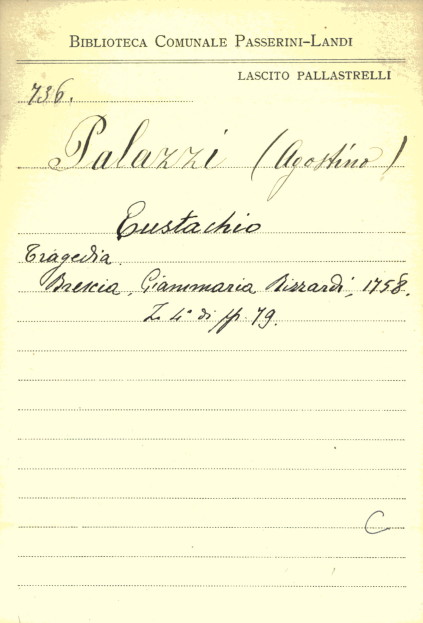 BIBLIOTECA COMUNALE PASSERINI-LANDI
LASCITO PALLASTRELLI
736.
Palazzi (Agostino)
Eustachio
Tragedia.
Brescia, Giammaria Rizzardi, 1758.
in 4° di pp. 79.
C